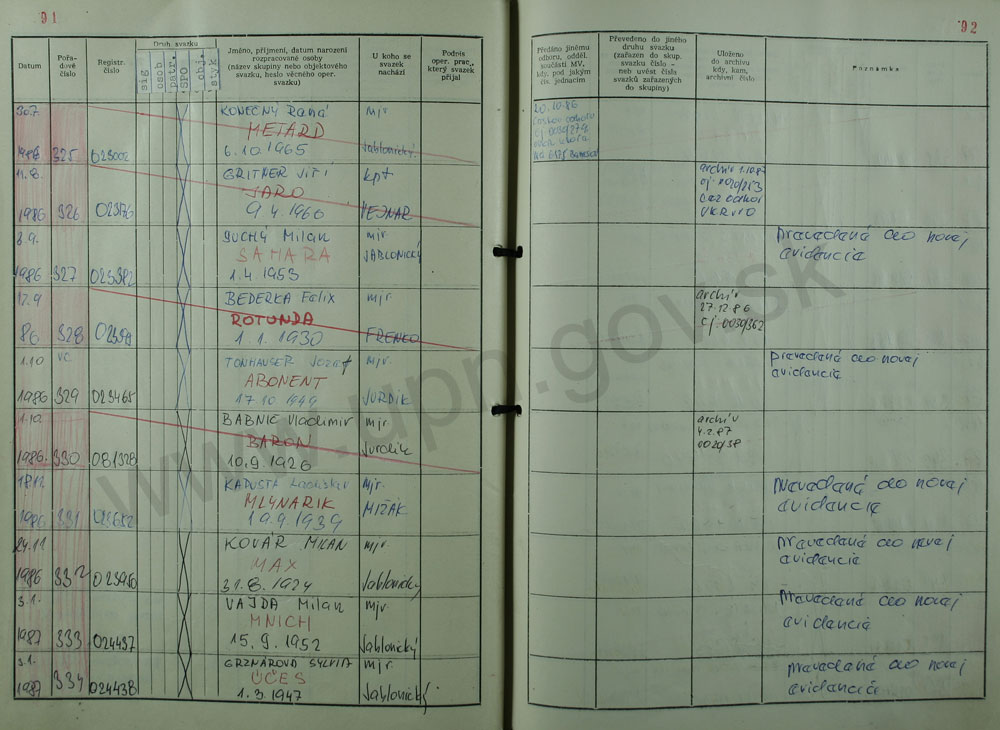 91
Datum
Pořadové číslo
Registr. číslo
Druh svazku
sig
osob
patr.
SPO
obj.
styk
Jméno, příjmení, datum narození
rozpracované osoby
(název skupiny nebo objektového
svazku, heslo věcného oper.
svazku)
U koho se
svazek
nachází
Podpis
oper. prac.,
který svazek
přijal
30.7.
1986 325 023002
KONEČNÝ René
METARD
6.10.1965
mjr
Jablonický
11.8.
1986 326 023176
GRITNER JIŘÍ
JARO
9.4.1960
kpt
VEJNAR
8.9.
1986 327 023382
SUCHÝ Milan
SAMARA
1.4.1953
mjr.
JABLONICKÝ
17.9
86 328
BEDERKA Felix
ROTUNDA
1.1.1930
mjr.
FRENKO
1.10 VC
1986 329 023465
TONHAUSER Jozef
ABONENT
17.10.1949
mjr.
JURDIK
1.10.
1986. 330 081328
BABNIČ Vladimir
BARON
10.9.1926
mjr.
Jurdik
18.11.
1986 331
KAPUSTA Ladislav
MLYNARIK
19.9.1939
mjr.
MIŽÁK
24.11
1986 332 023950
KOVÁR MILAN
MAX
31.8.1924
mjr.
Jablonický
3.1.
1987 333 024437
VAJDA Milan
MNICH
15.9.1952
mjr.
Jablonický
3.1.
1987 334 024438
GRZNÁROVÁ SYLVIA
ÚČES
1.3.1947
mjr.
Jablonický
92
Předáno jinému
odboru, odděl.
součásti MV,
kdy, pod jakým
čís. jednacím
Převedeno do jiného
druhu svazku
(zařazen do skup.
svazku číslo -
neb uvést čísla
svazků zařazených
do skupiny)
Uloženo
do archívu
kdy, kam,
archívní číslo
Poznámka
20.10.86
archív 1.10.87
čj. 0020/213
prevedená do novej
evidencie
archív
27.12.86
čj. 0030/362
prevedená do novej
evidencie
archív
4.2.87
0020/38
prevedená do novej
evidencie
prevedená do novej
evidencie
prevedená do novej
evidencie
prevedená do novej
evidencie
www.upn.gov.sk